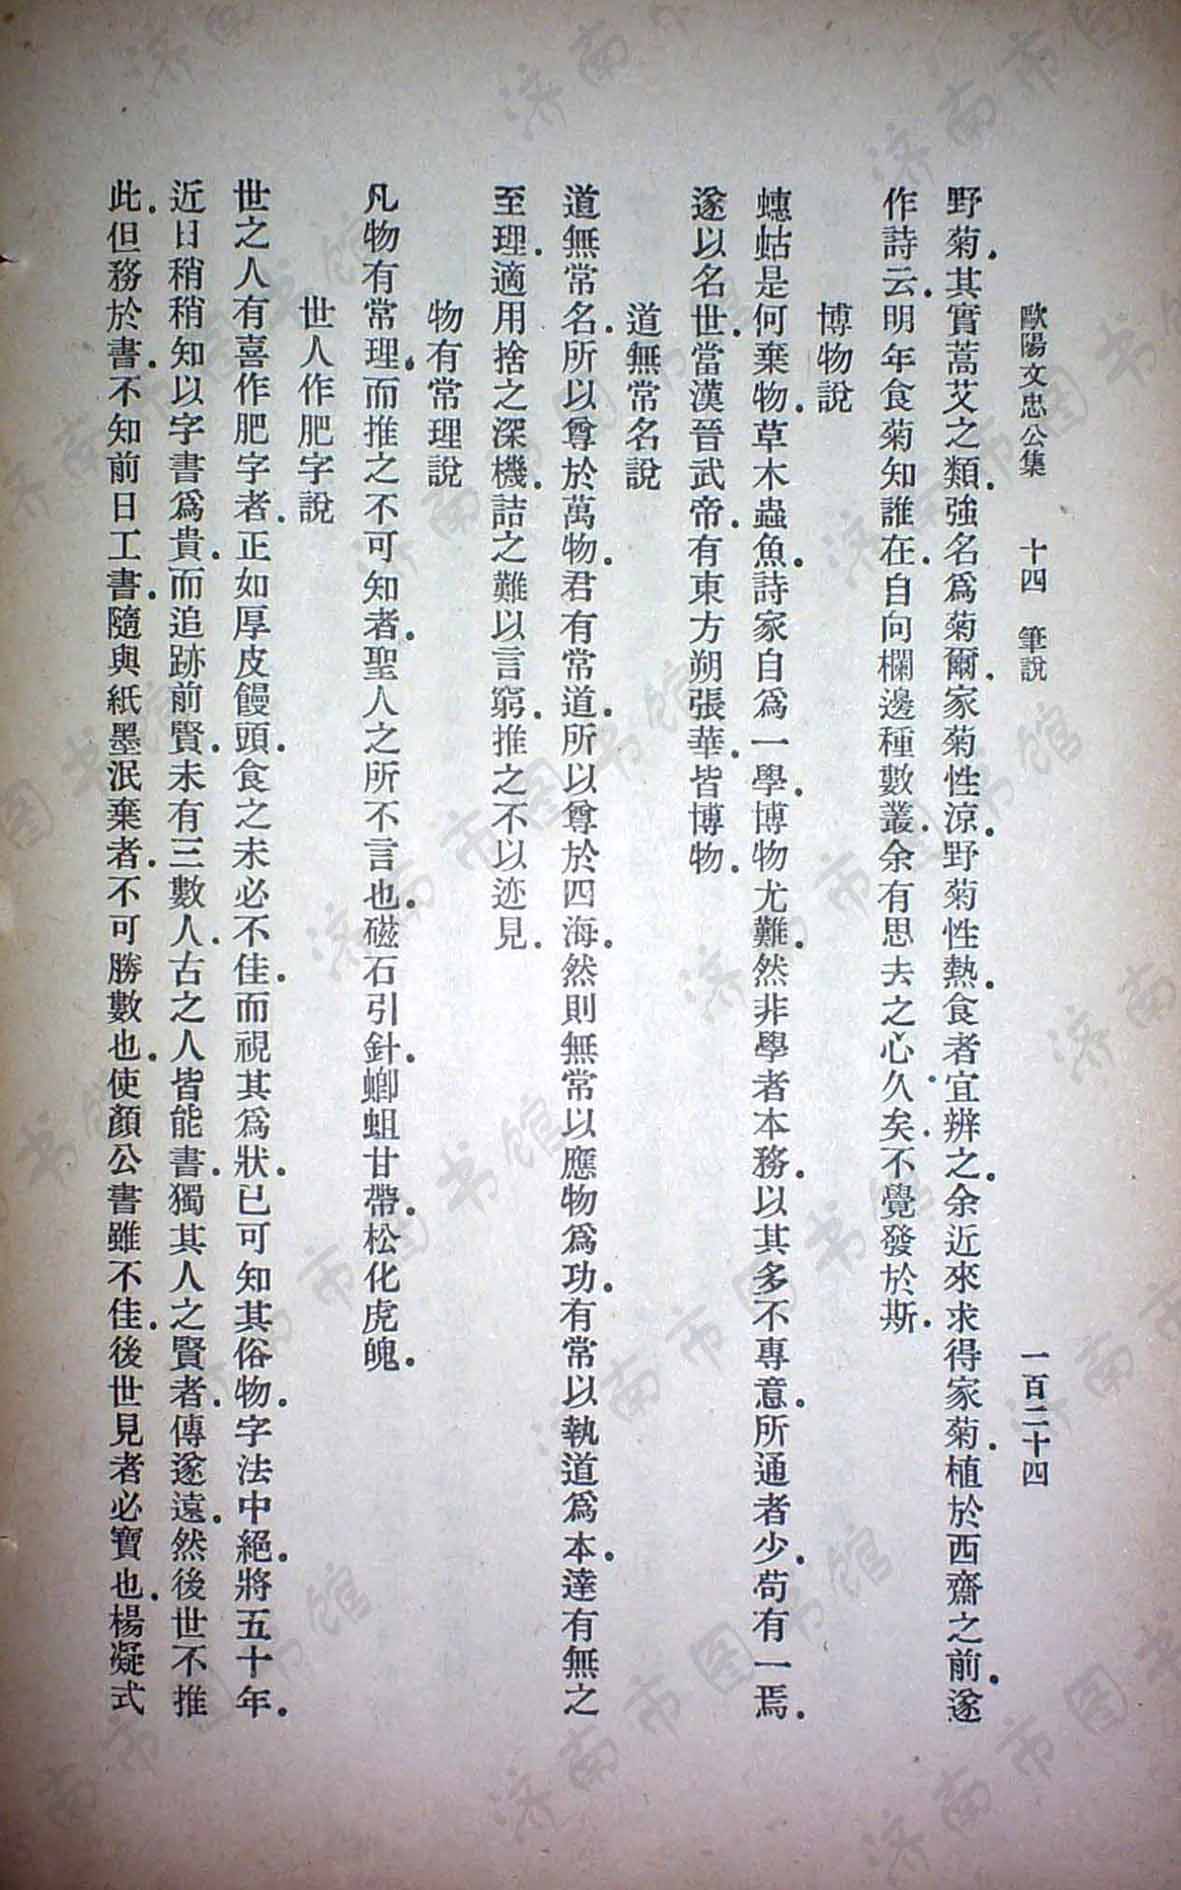 歐陽文忠公集　十四　筆說　一百二十四
野菊．其實蒿艾之類．強名爲菊爾．家菊性涼．野菊性熱．食者宜辨之．余近來求得家菊．植於西齋之前．遂
作詩云．明年食菊知誰在．自向欄邊種數叢．余有思去之心久矣．不覺發於斯．
博物說
蟪蛄是何棄物．草木蟲魚．詩家自爲一學．博物尤難．然非學者本務．以其多不專意．所通者少．苟有一焉．
遂以名世．當漢晉武帝．有東方朔張華．皆博物．
道無常名說
道無常名．所以尊於萬物．君有常道．所以尊於四海．然則無常以應物爲功．有常以執道爲本．達有無之
至理．適用捨之深機．詰之難以言窮．推之不以迹見．
物有常理說
凡物有常理．而推之不可知者．聖人之所不言也．磁石引針．蝍蛆甘帶．松化虎魄．
世人作肥字說
世之人有喜作肥字者．正如厚皮饅頭．食之未必不佳．而視其爲狀．已可知其俗物．字法中絕．將五十年．
近日稍稍知以字書爲貴．而追跡前賢．未有三數人．古之人皆能書．獨其人之賢者．傳遂遠．然後世不推
此．但務於書．不知前日工書．隨與紙墨泯棄者．不可勝數也．使顏公書雖不佳．後世見者必寶也．楊凝式
济南市图书馆